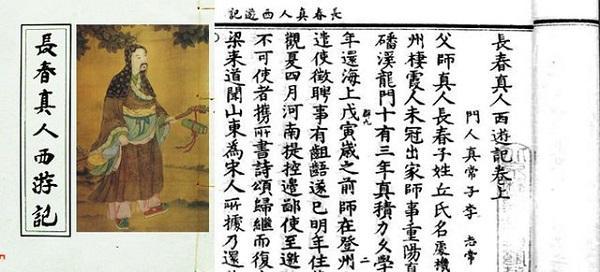 長春真人西游記
長春真人西遊記
長春真人西遊記卷上
門人真常子李志常
父師真人長春子姓丘氏名處機
州棲霞人未冠出家師事重陽真
磻溪龍門十有三年真積力久學
年還海上戊寅歲之前師在登州
群九
二
遣使徵聘事有齟齬遂已明年住
觀夏四月河南提控邊鄙使至邀
不可使者攜所書詩頌歸繼而復
梁來道聞山東為宋人所據乃還